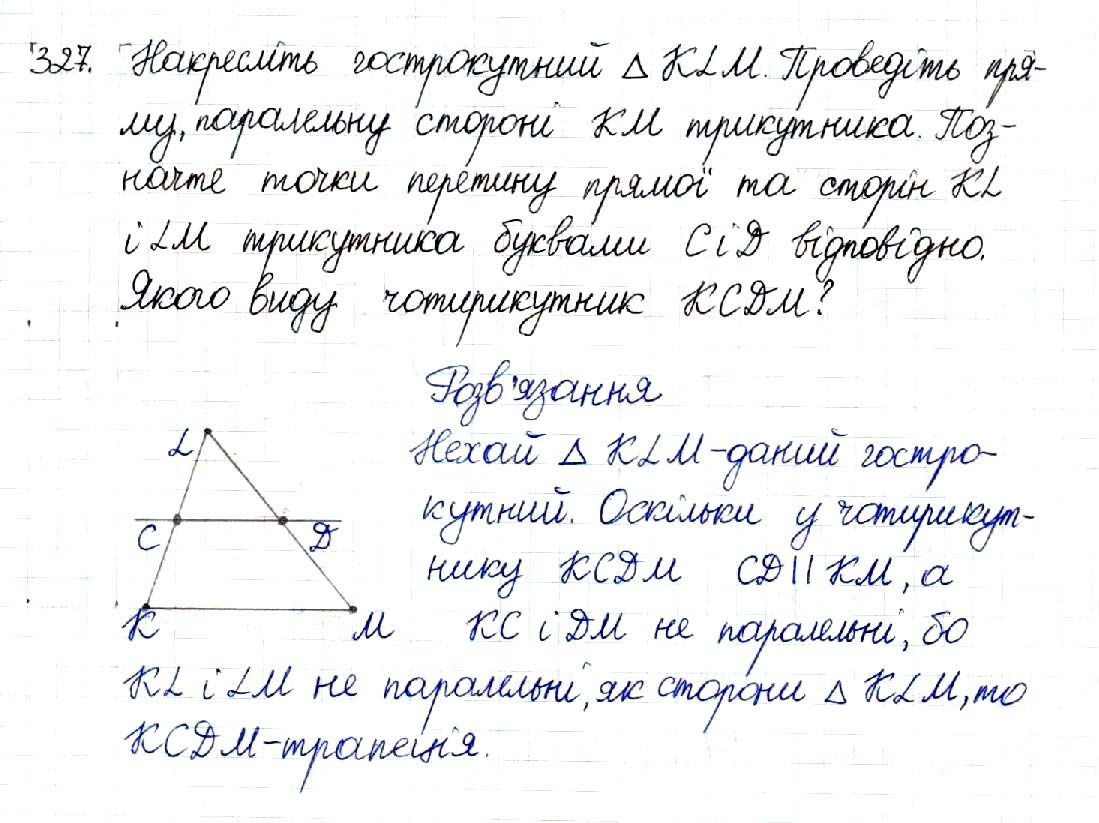 327. Накресліть гострокутний △ KLM. Проведіть пря-
му, паралельну стороні KM трикутника. Поз-
начте точки перетину прямої та сторін KL
і LM трикутника буквами C і D відповідно.
Якого виду чотирикутник KCDM?
Розв'язання
L
Нехай △ KLM-даний гостро-
кутний. Оскільки у чотирикут-
C
D
нику KCDM CD||KM, а
K
M
KC і DM не паралельні, бо
KL і LM не паралельні, як сторони △ KLM, то
KCDM-трапеція.